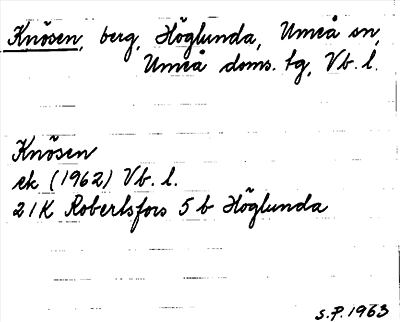 Knösen, berg, Höglunda, Umeå sn,
Umeå doms. tg, Vb. l.
Knösen
ek (1962) Vb. l.
21K Robertsfors 5 b Höglunda
S.P. 1963